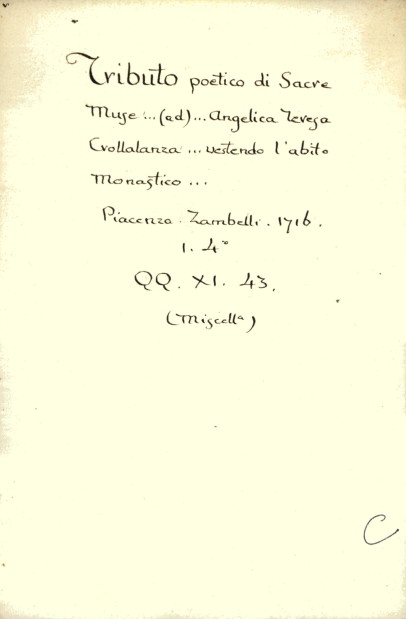 Tributo poetico di Sacre
Muse ... (ad) ... Angelica Teresa
Crollalanza ... vestendo l'abito
Monastico ...
Piacenza. Zambelli. 1716.
1. 4°
QQ. XI. 43.
(Miscellª)
C